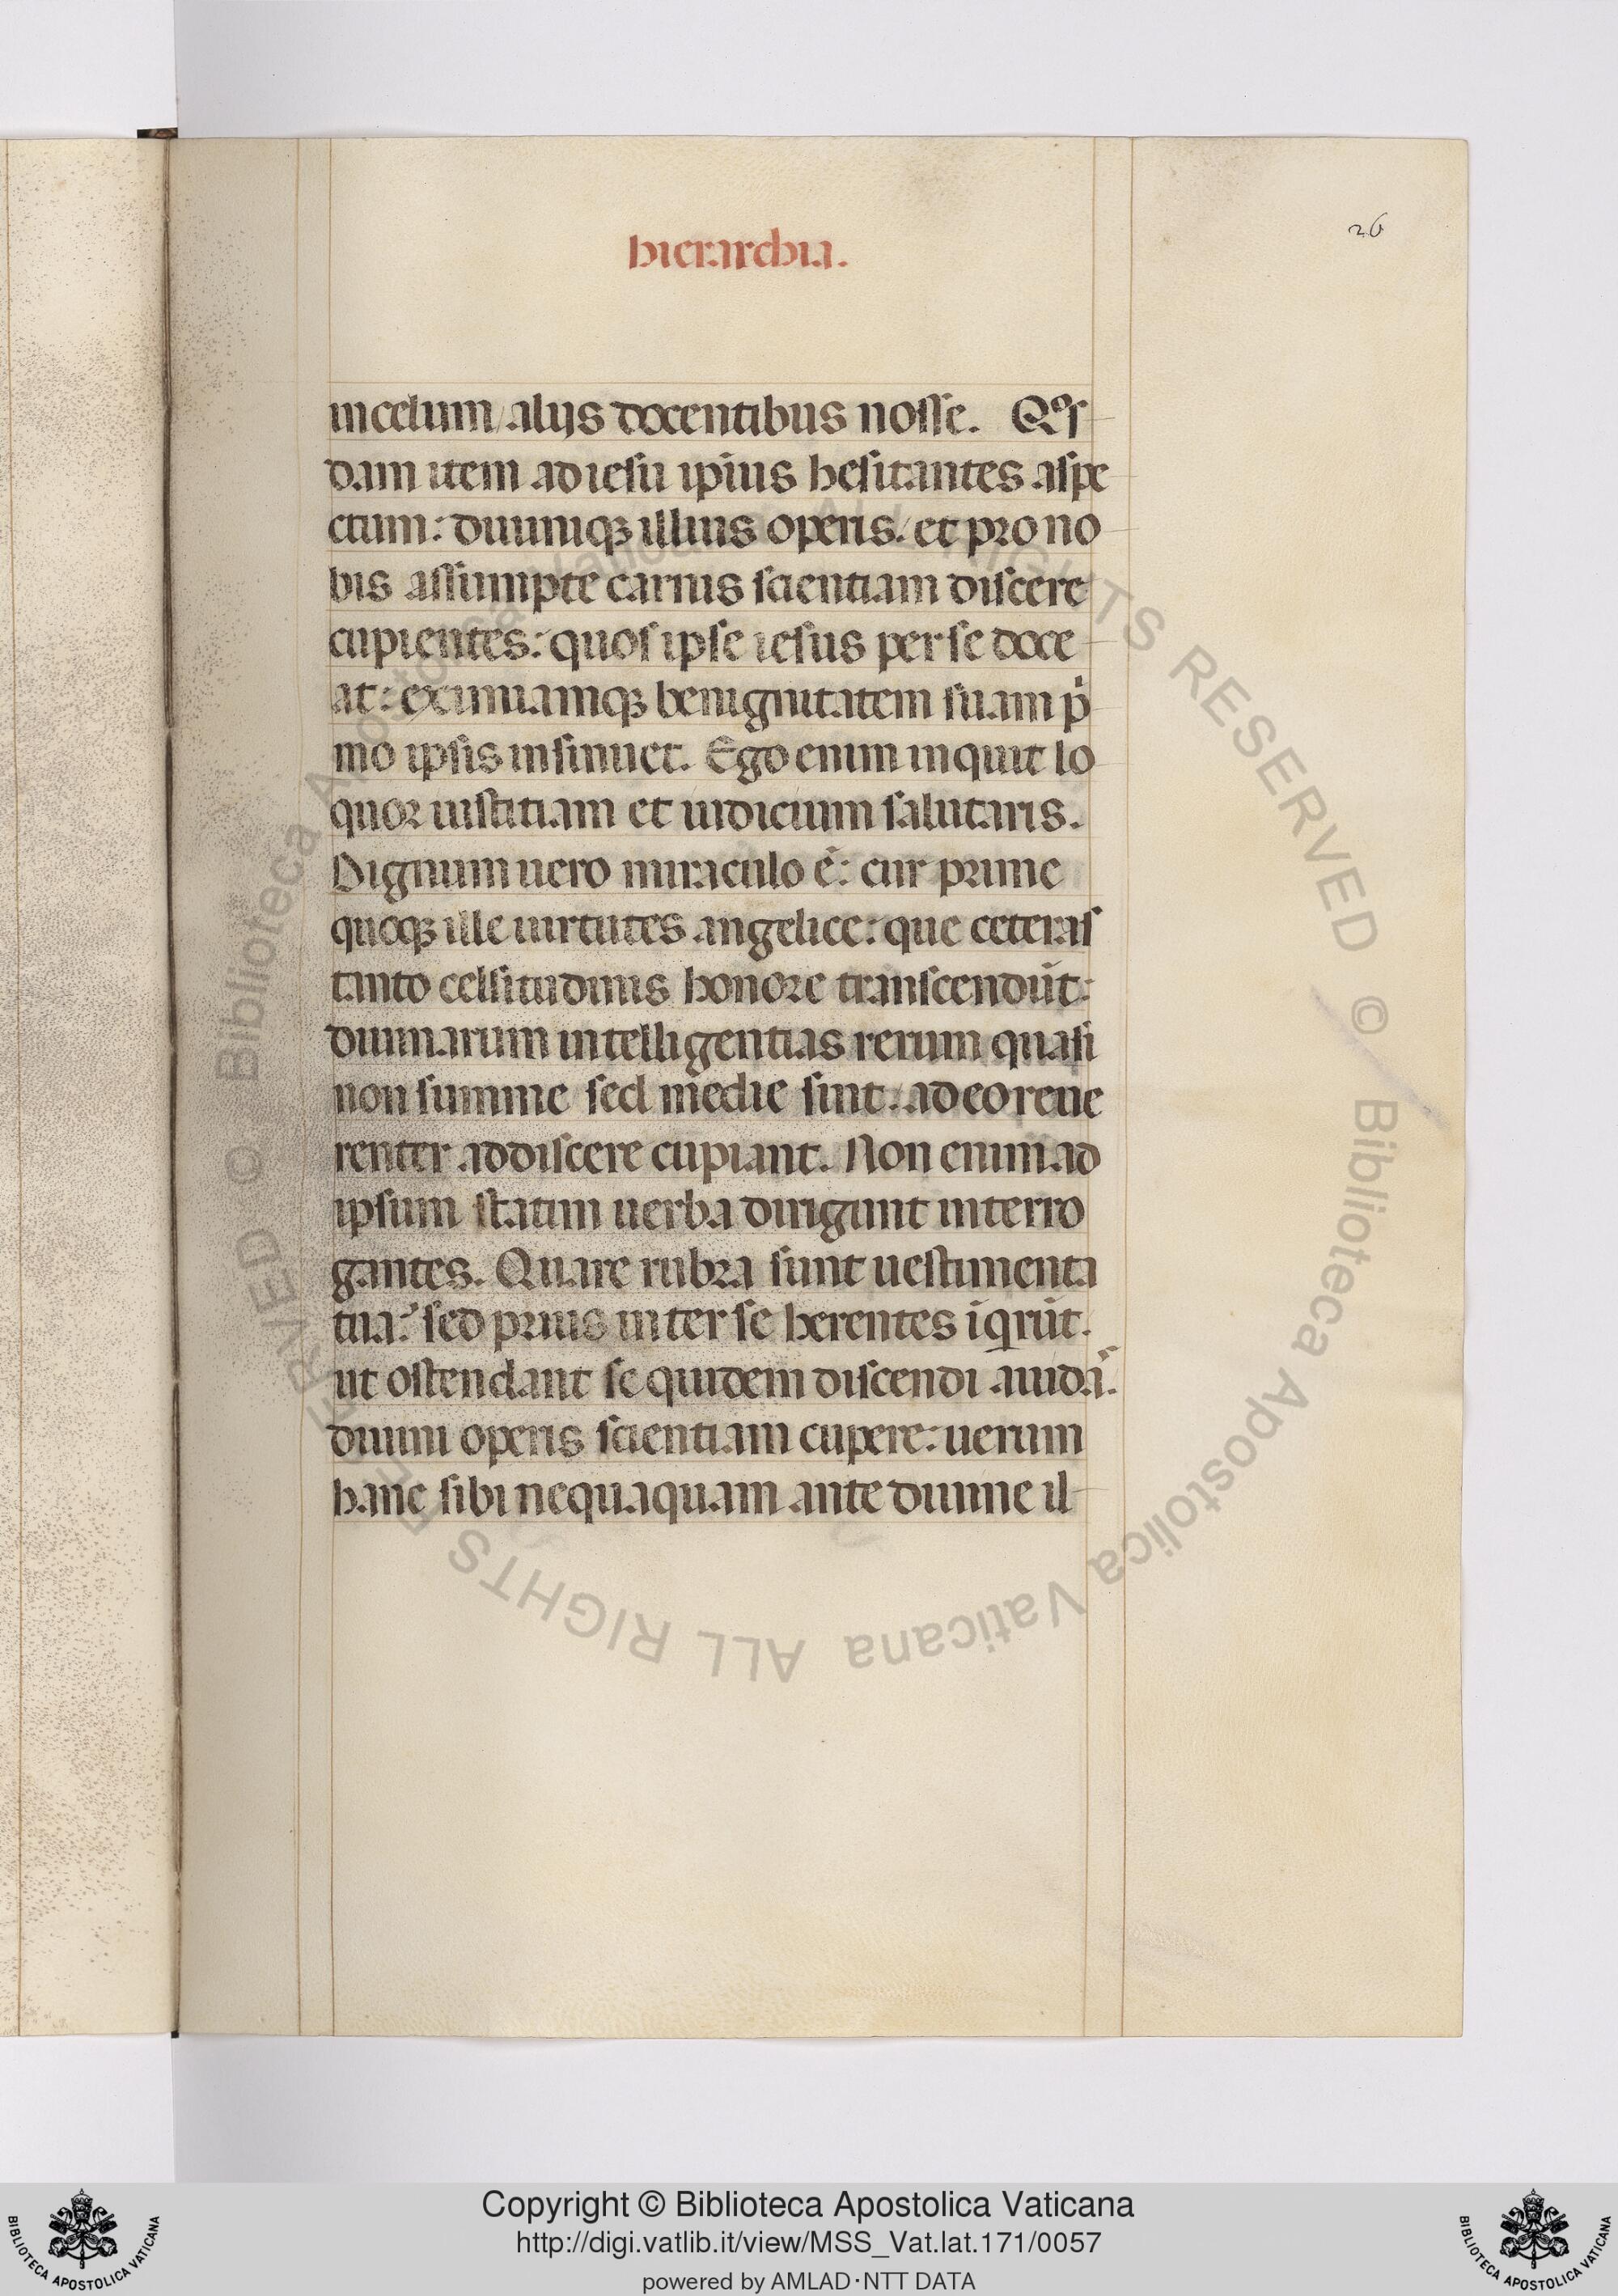 hierarchia.
26
in celum / alijs docentibus nosse. Qºs
dam item ad iesu ip̄ius hesitantes aspe
ctum: diuiniqꝫ illius operis / et pro no
bis assumpte carnis scientiam discere
cupientes: quos ipse iesus per se doce
at: eximiamqꝫ benignitatem suam pⁱ
mo ipsis insinuet. Ego enim inquit lo
quor iustitiam et iudicium salutaris.
Dignum uero miraculo ē: cur prime
quoqꝫ ille uirtutes angelice: que ceteras
tanto celsitudinis honore transcendūt:
diuinarum intelligentias rerum quasi
non summe sed medie sint / adeo reue
renter addiscere cupiant. Non enim ad
ipsum statim uerba dirigunt interro
gantes. Quare rubra sunt uestimenta
tua? sed prius inter se herentes īqrūt.
ut ostendant se quidem discendi auidā.
diuini operis scientiam cupere: uerum
hanc sibi nequaquam ante diuine il
Copyright © Biblioteca Apostolica Vaticana
http://digi.vatlib.it/view/MSS_Vat.lat.171/0057
powered by AMLAD·NTT DATA
BIBLIOTECA APOSTOLICA VATICANA
BIBLIOTECA APOSTOLICA VATICANA
© Biblioteca Apostolica Vaticana ALL RIGHTS RESERVED
© Biblioteca Apostolica Vaticana ALL RIGHTS RESERVED